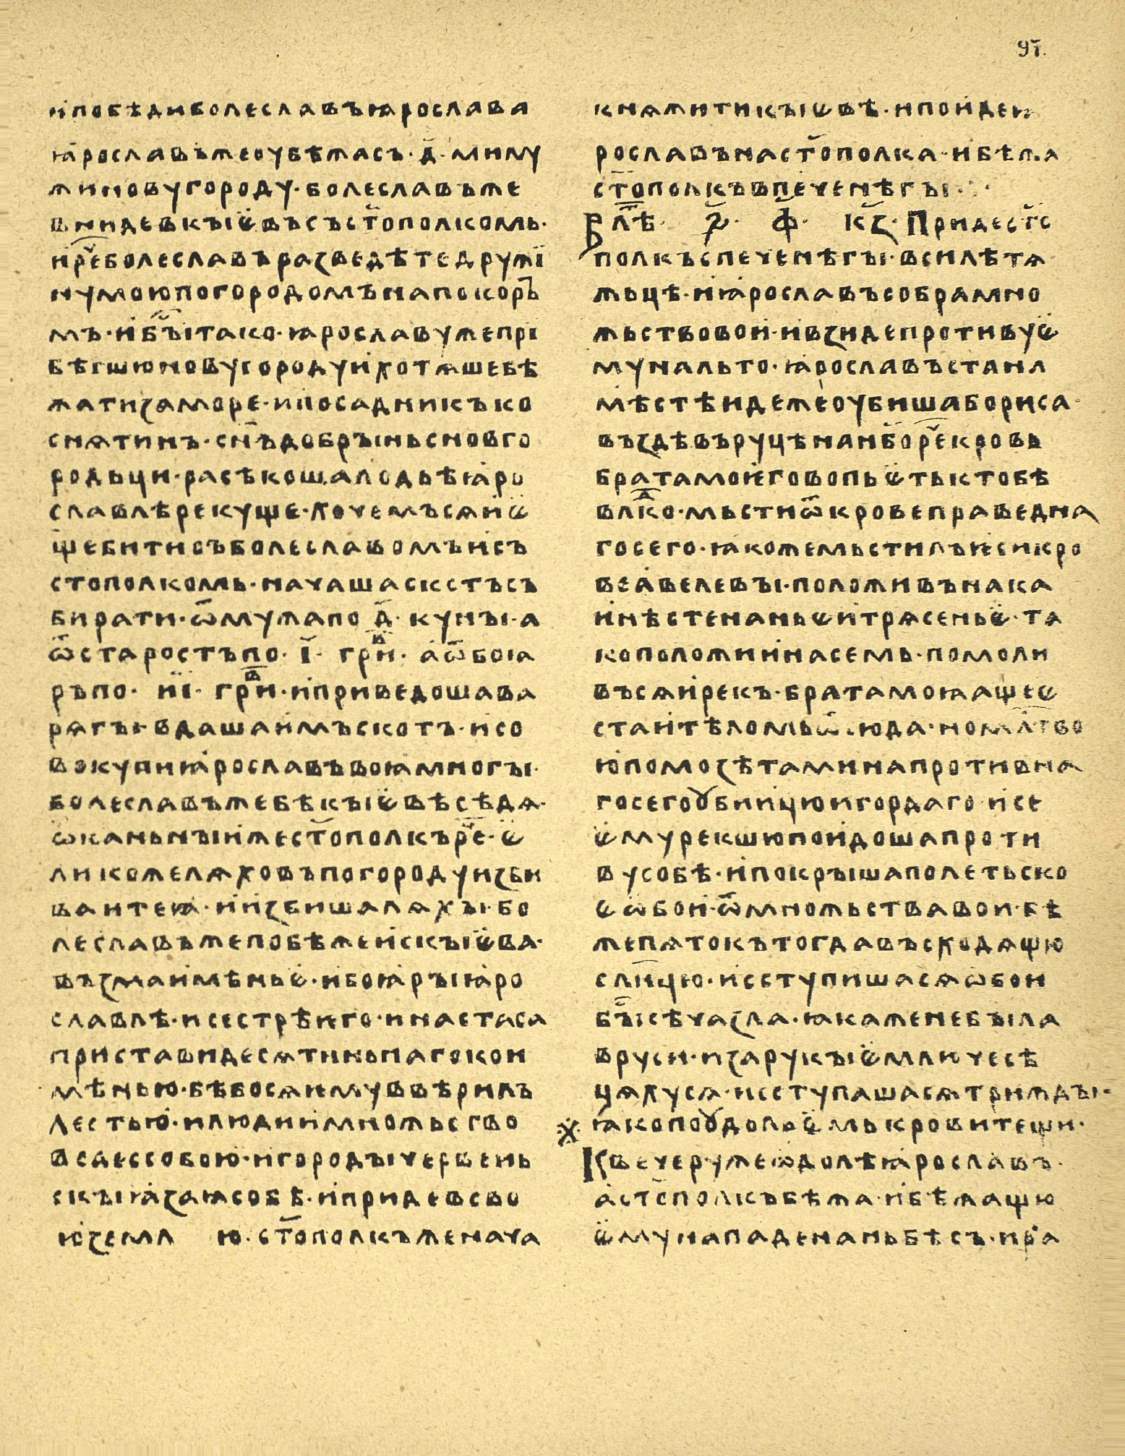 че҃.
и побѣди болеславъ ꙗрослава
ꙗрославъ же оубѣжасъ · д҃ · ми му
жи новугороду · болеславъ же
вниде в кыѥвъ съ ст҃ополкомь ·
и реⷱ҇ болеславъ разведѣте дружї
ну мою по городомъ на покоръ
мъ · и быⷭ҇ тако · ꙗрославу же прї
бѣгшю новугороду и хотѧше бѣ
жати за море · и посадникъ ко
снѧтинъ · сн҃ъ добрынь с новго
родьци · расѣкоша лодьѣ ꙗро
славлѣ рекуще · хочемъ сѧ и ѥ
ще бити съ болеславомъ и съ
стополкомь · начаша скстъ съ
бирати · ѿ мужа по д҃ · куны · а
ѿ старостъ по · ı҃ · грⷩ҇и · а ѿ боıа
ръ по · иı҃ · грⷡ҇и · и приведоша ва
рѧгы · вдаша имъ скотъ · и со
вокупи ꙗрославъ воꙗ многы ·
болеславъ же бѣ кыѥвѣ сѣдѧ ·
ѡканьныи же ст҃ополкъ реⷱ҇ · ѥ
лико же лѧховъ по городу изби
ваите ꙗ · и избиша лѧхы · бо
леславъ же побѣже ис кыѥва ·
възма имѣньѥ · и боꙗры ꙗро
славлѣ · и сестрѣ иго · и настаса
пристави десѧтиньнаго ко и
мѣнью · бѣ бо сѧ ему ввѣрилъ
лестью · и люди и множьство
ведес собою · и городы червень
скыꙗ заꙗ собѣ · и приде в сво
ю земл ю · ст҃ополкъ же нача
кнѧжити кыѥвѣ · и поиде ꙗ
рославъ на ст҃ополка · и бѣжа
ст҃ополкъ в печенѣгы ·
В лⷮ҇ѣ · ҂ѕ҃ · ф҃ · к҃з · Приде ст҃о
полкъ с печенѣгы · в силѣ тѧ
жьцѣ · и ꙗрославъ собра мно
жьство вои · и взиде противу ѥ
му на льто · ꙗрославъ ста на
мѣстѣ идеже оубиша бориса ·
въздѣвъ руцѣ на нб҃о реⷱ҇ кровь
брата моѥго вопьѥть к тобѣ
влⷣ҇ко · мьсти ѿ крове праведна
го сего · ꙗкоже мьстилъ ѥси кро
ве авелевы · положивъ на ка
инѣ стенаньѥ и трѧсеньѥ · та
ко положи и на семь · помоли
въсѧ и рекъ · брата моꙗ аще ѥ
ста и тѣломь ѿ юда · но млт҃во
ю помозѣта ми на противна
го сего оубиицю и гордаго · и се
ѥму рекшю поидоша проти
ву собѣ · и покрыша поле тьско
ѥ ѡбои · ѿ множьства вои · бѣ
же пѧтокъ тогда въсходѧщю
слн҃цю · и сступишасѧ ѡбои
быⷭ҇ сѣча зла · ꙗка же не была
в руси · и за рукы ѥмличе сѣ
цѧхусѧ · и сступашасѧ трижды ·
ꙗко по оудольѥмь крови тещи ·
К вечеру же ѡдолѣ ꙗрославъ ·
а ст҃ополкъ бѣжа · и бѣжащю
ѥму нападе на нь бѣсъ · и ра